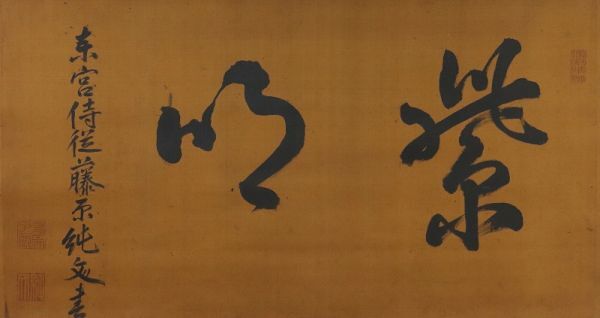 紫明
東宮侍従藤原純書